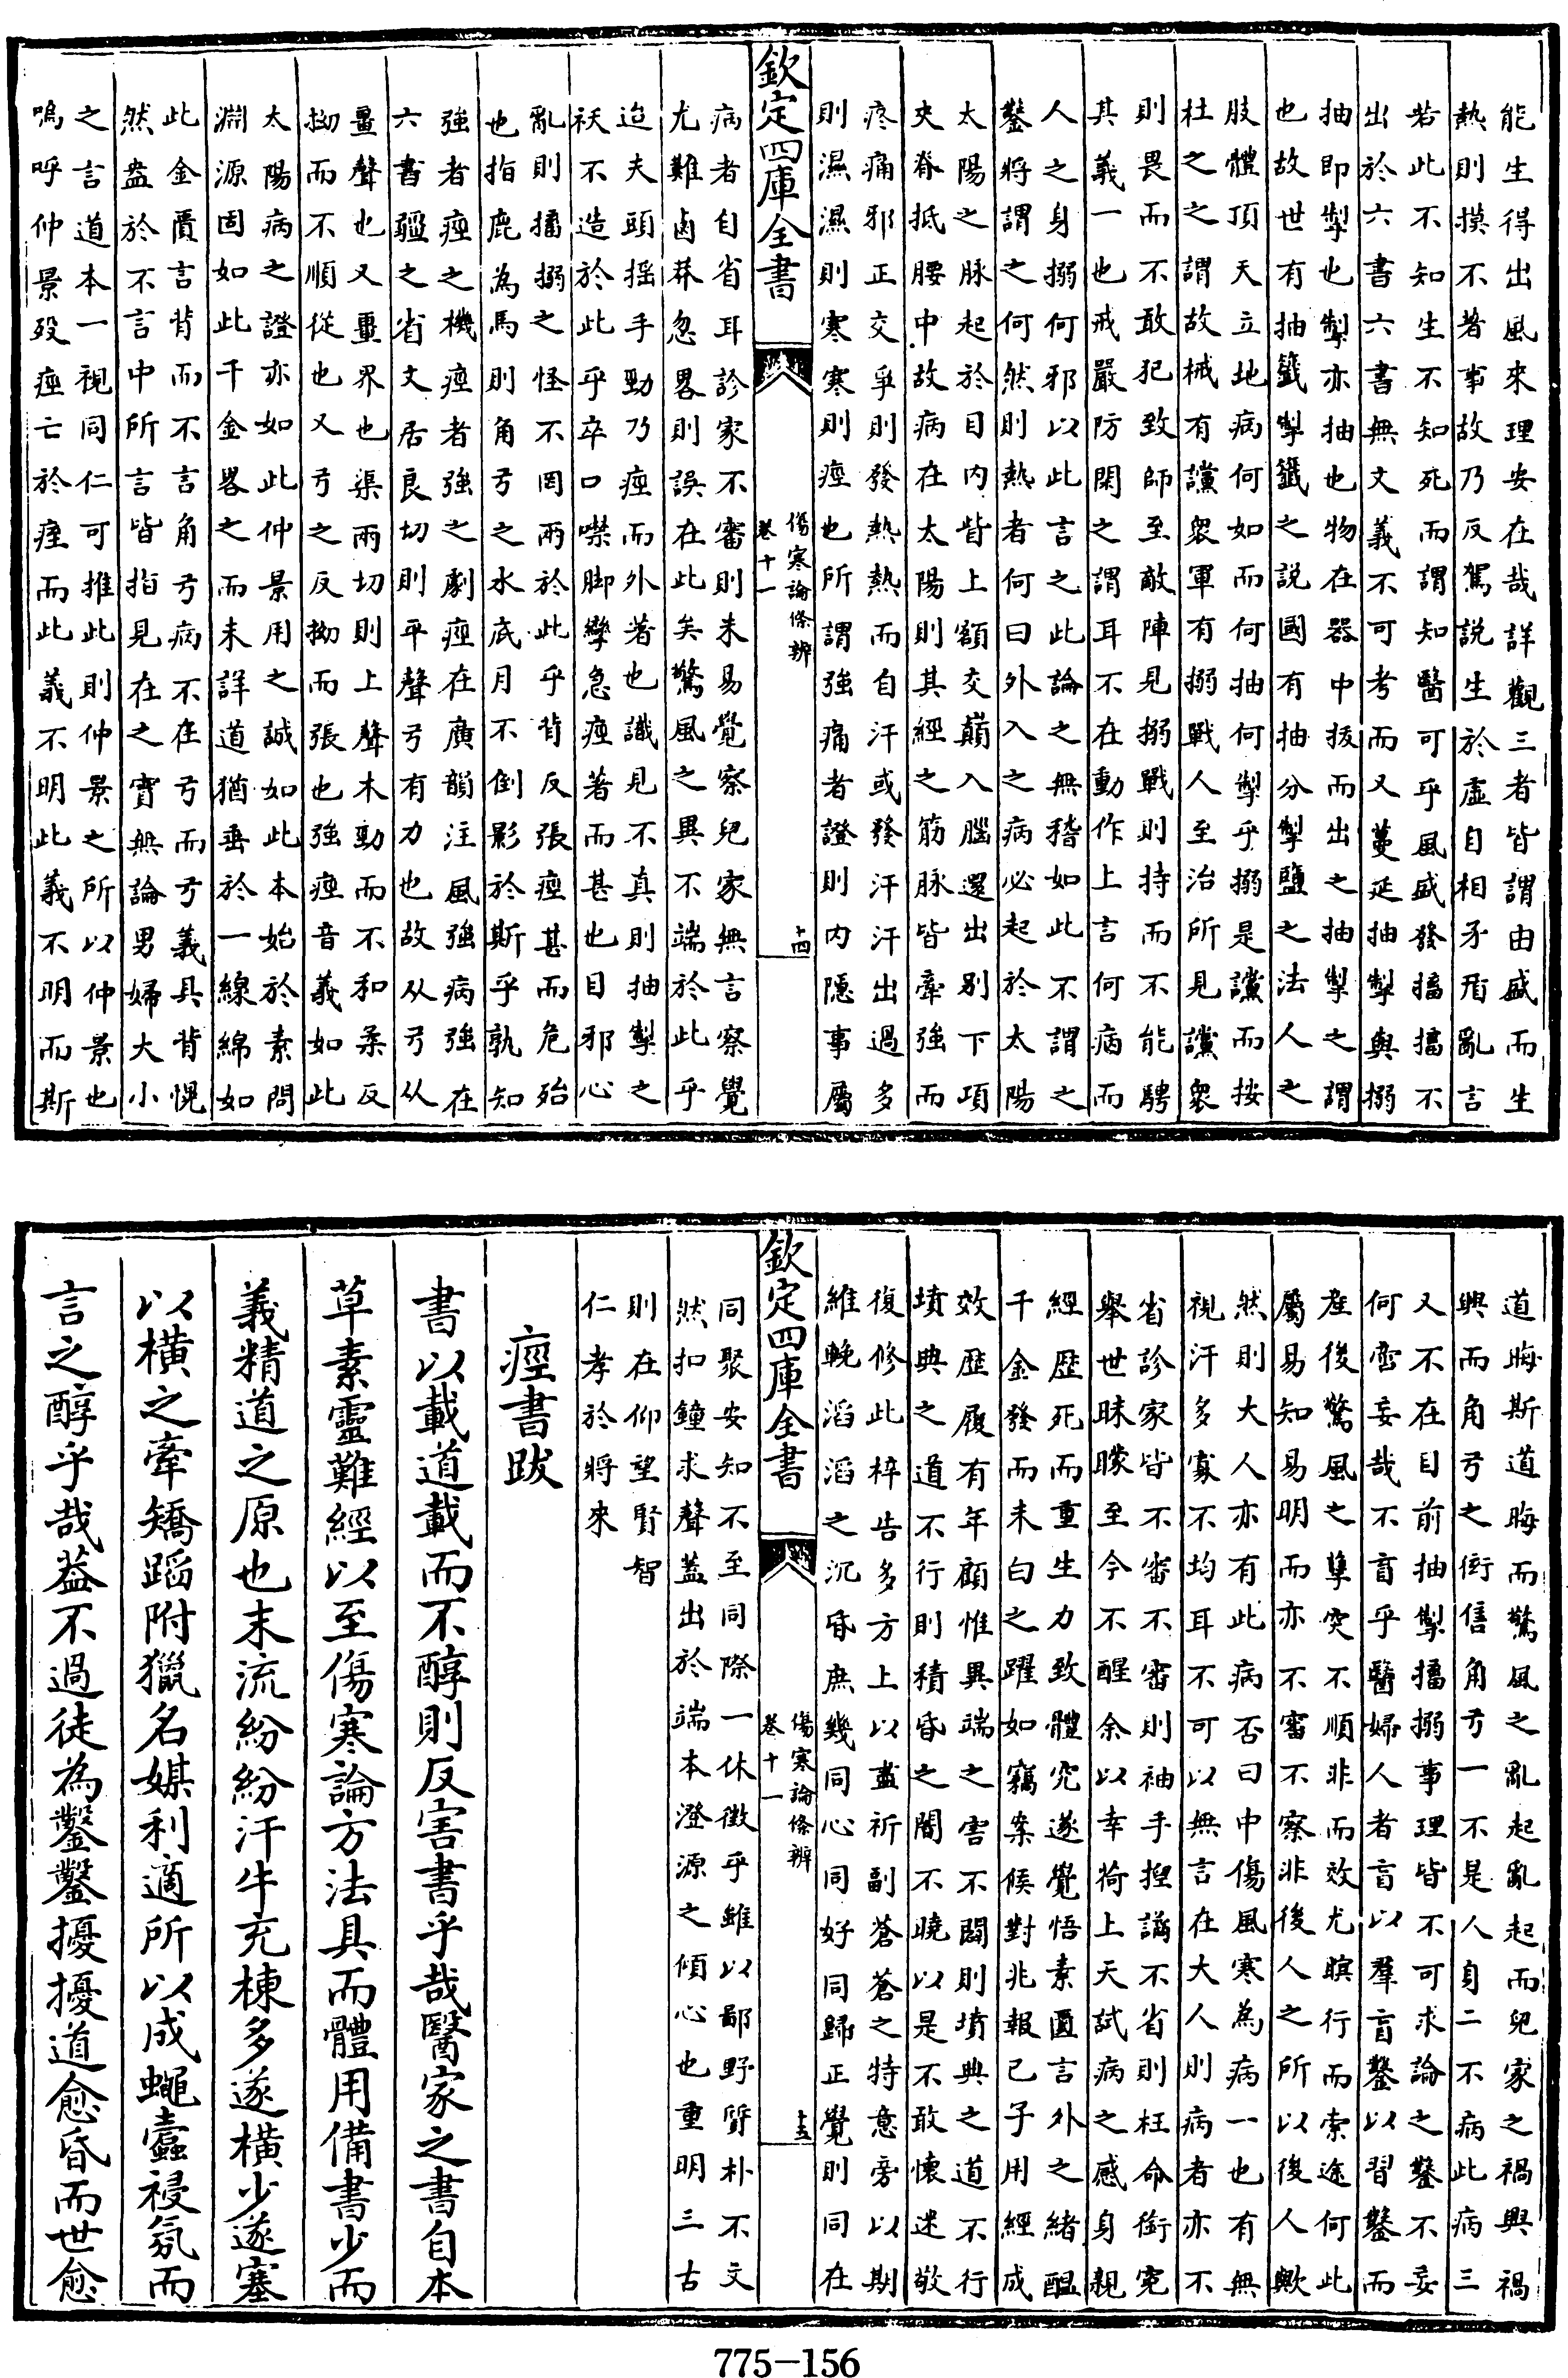 能生得出風來理安在哉詳觀三者皆謂由盛而生
熱則摸不著事故乃反駕説生於虛自相矛盾亂言
若此不知生不知死而謂知醫可乎風盛發搐搐不
出於六書六書無文義不可考而又蔓延抽掣與搦
抽即掣也掣亦抽也物在器中抜而出之抽掣之謂
也故世有抽籤掣籤之説國有抽分掣鹽之法人之
肢體頂天立地病何如而何抽何掣乎搦是讜而按
杜之之謂故械有讜衆軍有搦戰人至治所見讜衆
則畏而不敢犯致師至敵陣見搦戰則持而不能騁
其義一也戒嚴防閑之謂耳不在動作上言何病而
人之身搦何邪以此言之此論之無稽如此不謂之
鑿將謂之何然則熱者何曰外入之病必起於太陽
太陽之脉起於目内眥上額交巔入腦還出别下項
夾脊抵腰中故病在太陽則其經之筋脉皆牽強而
疼痛邪正交爭則發熱熱而自汗或發汗汗出過多
則濕濕則寒寒則痙也所謂強痛者證則内隱事屬
欽定四庫全書
傷寒論條辨
卷十一
十四
病者自省耳診家不審則未易覺察兒家無言察覺
尤難鹵莽忽畧則誤在此矣驚風之異不端於此乎
迨夫頭揺手勁乃痙而外著也識見不真則抽掣之
祅不造於此乎卒口噤脚攣急痙著而甚也目邪心
亂則搐搦之怪不罔兩於此乎背反張痙甚而危殆
也指鹿為馬則角弓之水底月不倒影於斯乎孰知
強者痙之機痙者強之劇痙在廣韻注風強病強在
六書彊之省文居良切則平聲弓有力也故从弓从
畺聲也又畺界也渠兩切則上聲木勁而不和柔反
拗而不順從也又弓之反拗而張也強痙音義如此
太陽病之證亦如此仲景用之誠如此本始於素問
淵源固如此千金畧之而未詳道猶垂於一線綿如
此金匱言背而不言角弓病不在弓而弓義具背幌
然盎於不言中所言皆指見在之實無論男婦大小
之言道本一視同仁可推此則仲景之所以仲景也
嗚呼仲景歿痙亡於痓而此義不明此義不明而斯
道晦斯道晦而驚風之亂起亂起而兒家之禍興禍
興而角弓之衒信角弓一不是人身二不病此病三
又不在目前抽掣搐搦事理皆不可求論之鑿不妄
何啻妄哉不盲乎醫婦人者盲以羣盲鑿以習鑿而
産後驚風之孽突不順非而效尤瞑行而索途何此
屬易知易明而亦不審不察非後人之所以後人歟
然則大人亦有此病否曰中傷風寒為病一也有無
視汗多寡不均耳不可以無言在大人則病者亦不
省診家皆不審不審則袖手揑譌不省則枉命銜寃
舉世昧矇至今不醒余以幸荷上天試病之感身親
經歴死而重生力致體究遂覺悟素匱言外之緒醖
千金發而未白之躍如竊案候對兆報已子用經成
效歴履有年顧惟異端之害不闢則墳典之道不行
墳典之道不行則積昏之闇不曉以是不敢懷迷敬
復修此梓告多方上以盡祈副蒼蒼之特意旁以期
維輓滔滔之沉昏庶幾同心同好同歸正覺則同在
欽定四庫全書
傷寒論條辨
卷十一
十五
同聚安知不至同際一休徵乎雖以鄙野質朴不文
然扣鐘求聲葢出於端本澄源之傾心也重明三古
則在仰望賢智
仁孝於將來
痙書跋
書以載道載而不醇則反害書乎哉醫家之書自本
草素靈難經以至傷寒論方法具而體用備書少而
義精道之原也末流紛紛汗牛充棟多遂橫少遂塞
以橫之牽矯蹈附獵名媒利適所以成蠅蠹祲氛而
言之醇乎哉葢不過徒為鑿鑿擾擾道愈昏而世愈
775-156